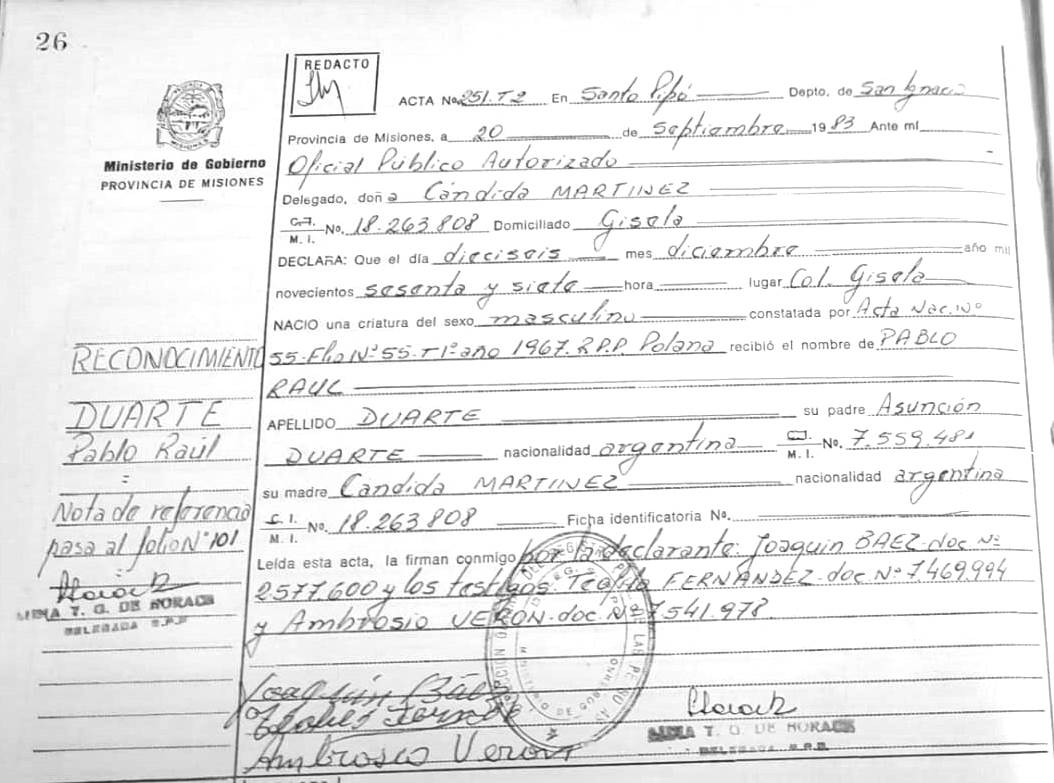 26
REDACTO
ACTA No. 251.T2 En Santo Pipó Depto. de San Ignacio
Provincia de Misiones, a 20 de septiambre 1983 Ante mí
Ministerio de Gobierno
PROVINCIA DE MISIONES
Oficial Público Autorizado
Delegado, doña Cándida MARTINEZ
C.I. M. I. No. 18.263.808 Domiciliado Gisela
DECLARA: Que el día dieciseis mes diciembre año mil
novecientos sesenta y siete hora lugar Col. Gisela
NACIO una criatura del sexo masculino constatada por Acta Nac. Nº
RECONOCIMIENTO
55-Flio Nº 55-T1º año 1967. R.P.P. Polana recibió el nombre de PABLO
RAUL
DUARTE
Pablo Raúl
APELLIDO DUARTE su padre Asunción
DUARTE nacionalidad argentina C.I. M. I. No. 7.559.481
su madre Candida MARTINEZ nacionalidad argentina
Nota de referencia
pasa al folio Nº 101
C. I. M. I. No. 18.263 808 Ficha identificatoria No.
Leída esta acta, la firman conmigo por la declarante: Joaquin BAEZ-doc Nº
2577.600 y los testigos: FERNANDEZ-doc. Nº 7469.994
y Ambrosio VERON-doc. Nº 7541.978
T. G. DE HORACK
DELEGADA R.P.P.
MINISTERIO DE GOBIERNO
Joaquin Báez
Ambrosio Veron
T. G. DE HORACK
DELEGADA R.P.P.